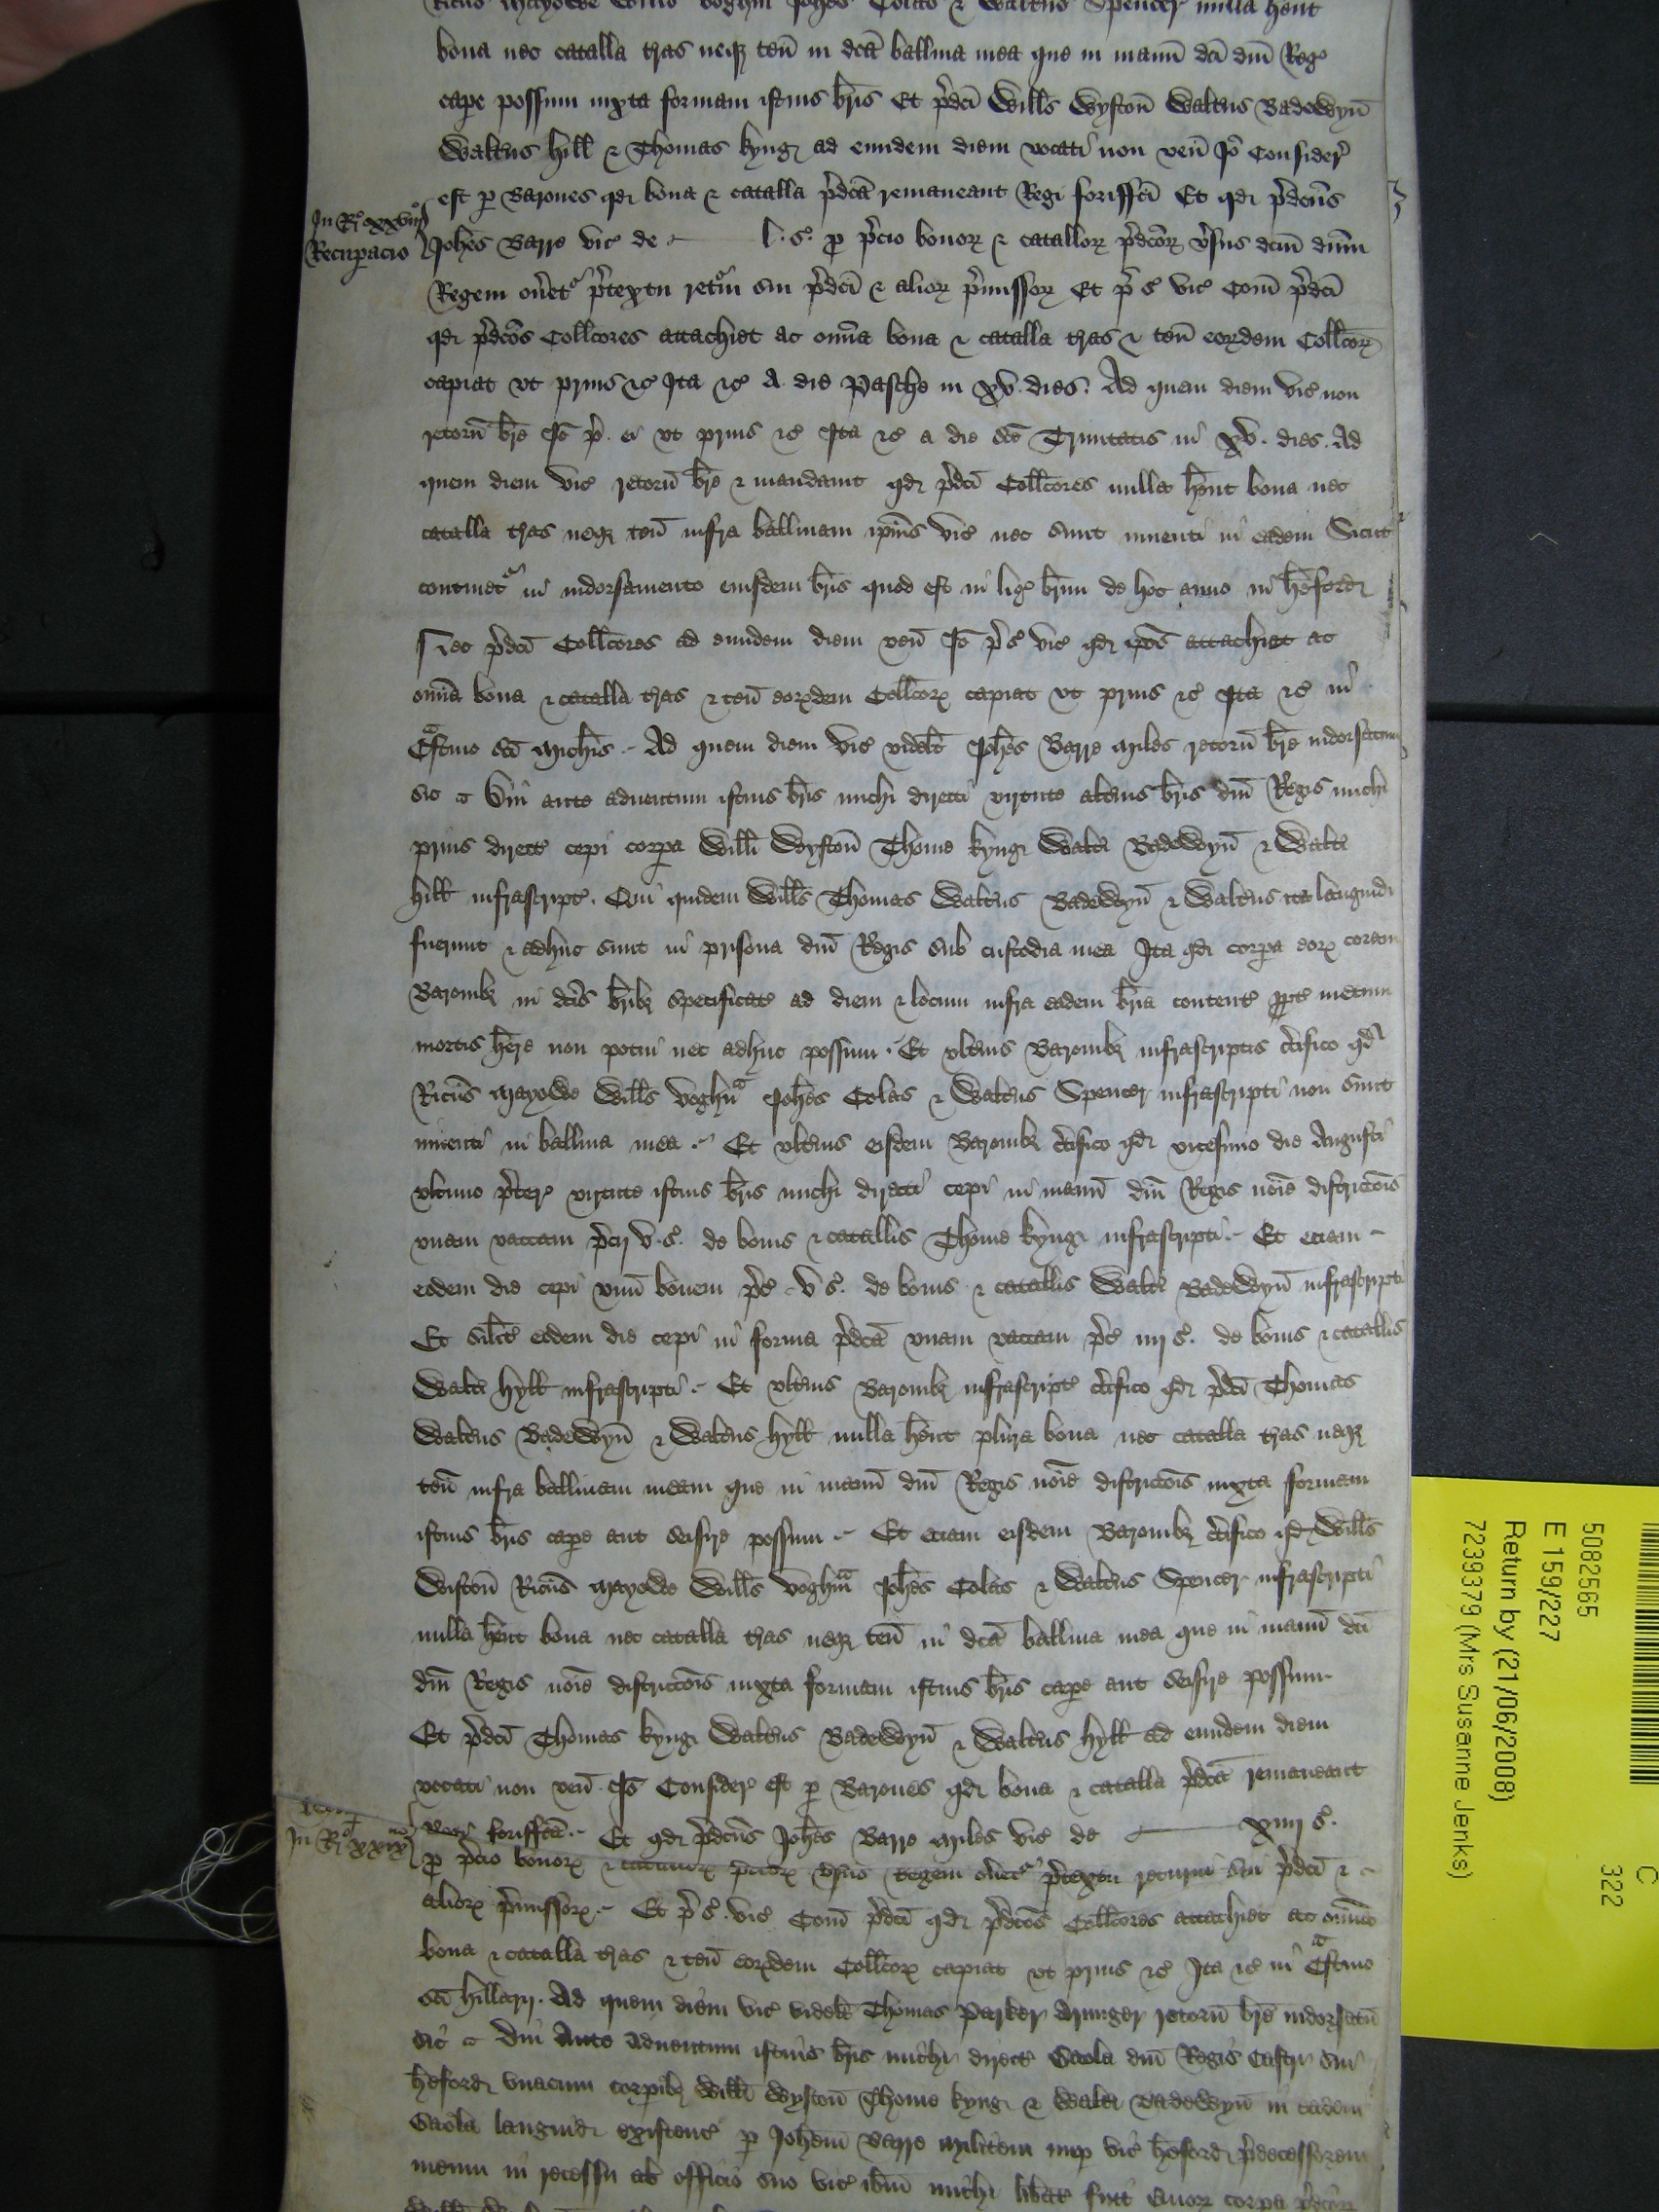 Ricus Mayowe Willo Voghin Johes Colas & Waltus Spencer nulla hent
bona nec catalla tras neqz ten in dca balliua mea que in manu dci dni Reg
cape possum iuxta formam istius bris Et pdci Wills Wyston Waltus Badewyn
Waltus hill & Thomas kyng ad eundem diem vocati non ven Io Consider
est p Barones qd bona & catalla pdca remaneant Regi forisfca Et qd pdcus
In R° xxviij°
Recuperacio
Johes Barre vic de l. s. p pcio bonor & catallor pdcor vsus dcm dnm
Regem onet ptextu retorn sui pdci & alior pmissor Et p s vic Com pdci
qd pdcos Collcores attachiet ac omia bona & catalla tras & ten eordem Collcor
capiat vt prius &c Ita &c A die Pasche in xv dies. Ad quem diem vic non
retorn bre Io p ei vt prius &c Ita &c a die sce Trinitatis in xv. dies. Ad
quem diem vic retorn bre & mandauit qd pdci Collcores nulla hent bona nec
catalla tras neqz ten infra balliuam ipius vic nec sunt inuenti in eadem Sicut
continet in indorsamento eiusdem bris quod est in lig brium de hoc anno in heford
Nec pdci Collcores ad eundem diem ven Io p s vic qd eos attachiet ac
omia bona & catalla tras & ten eordem Collcor capiat vt prius &c Ita &c in
Cstino sci Michis. Ad quem diem vic videlt Johes Barre miles retorn bre indorsatum
sic Dni ante aduentum istius bris michi directi virtute alterius bris dni Regis michi
prius direct cepi corpa Willi Wyston Thome kyng Walti Badewyn & Walti
hill infrascript. Qui quidem Wills Thomas Waltus Badewyn & Waltus ita languid
fuerunt & adhuc sunt in prisona dni Regis sub custodia mea Ita qd corpa eor coram
Baronibz in dcis bribz specificat ad diem & locum infra eadem bria content ppt metum
mortis here non potui nec adhuc possum. Et vltius Baronibz infrascriptis ctifico qd
Ricus Mayowe Wills Voghn Johes Colas & Waltus Spencer infrascripti non sunt
inuenti in balliua mea. Et vltius eisdem Baronibz ctifico qd vicesimo die Augusti
vltimo pter virtute istius bris michi directi cepi in manu dni Regis noie districcois
vnam vaccam pcij v. s. de bonis & catallis Thome kyng infrascripti. Et eciam
eodem die cepi vnu bouem pc v s. de bonis & catallis Walti Badewyn infrascripti
Et silit eodem die cepi in forma pdca vnam vaccam pc iiij s. de bonis & catallis
Walti hyll infrascripti. Et vltius Baronibz infrascript ctifico qd pdci Thomas
Waltus Badewyn & Waltus hyll nulla hent plura bona nec catalla tras neqz
ten infra balliuam meam que in manu dni Regis noie districcois iuxta formam
istius bris cape aut seisire possum. Et eciam eisdem Baronibz ctifico qd Wills
Wiston Ricus Mayowe Wills Voghm Johes Colas & Waltus Spencer infrascripti
nulla hent bona nec catalla tras neqz ten in dca balliua mea que in manu dci
dni Regis noie districcois iuxta formam istius bris cape aut seisire possum
Et pdci Thomas kyng Waltus Badewyn & Waltus hyll ad eundem diem
vocati non ven Io Consider est p Barones qd bona & catalla pdca remaneant
In R° xxix
Regi forisfca. Et qd pdcus Johes Barre miles vic de xiiij s.
p pcio bonor & catallor pdcor vsus Regem onet ptextu retorni sui pdci &
alior pmissor. Et p s. vic Com pdci qd pdcos Collcores attachiet ac omia
bona & catalla tras & ten eordem Collcor capiat vt prius &c Ita &c in Cstino
sci hillarij. Ad quem diem vic videlt Thomas Parker Armiger retorn bre indorsatu
sic Dni Ante aduentum istius bris michi direct Gaola dni Regis Castri sui
heford vnacum corpibz Willi Wyston Thome kyng & Walti Badewyn in eadem
Gaola languid existent p Johem Barre militem nup vic heford pdecessorem
meum in recessu ab officio suo vic ibm michi libat fuit Quor corpa pdcor
C
322
5082565
E 159/227
Return by (21/06/2008)
7239379 (Mrs Susanne Jenks)